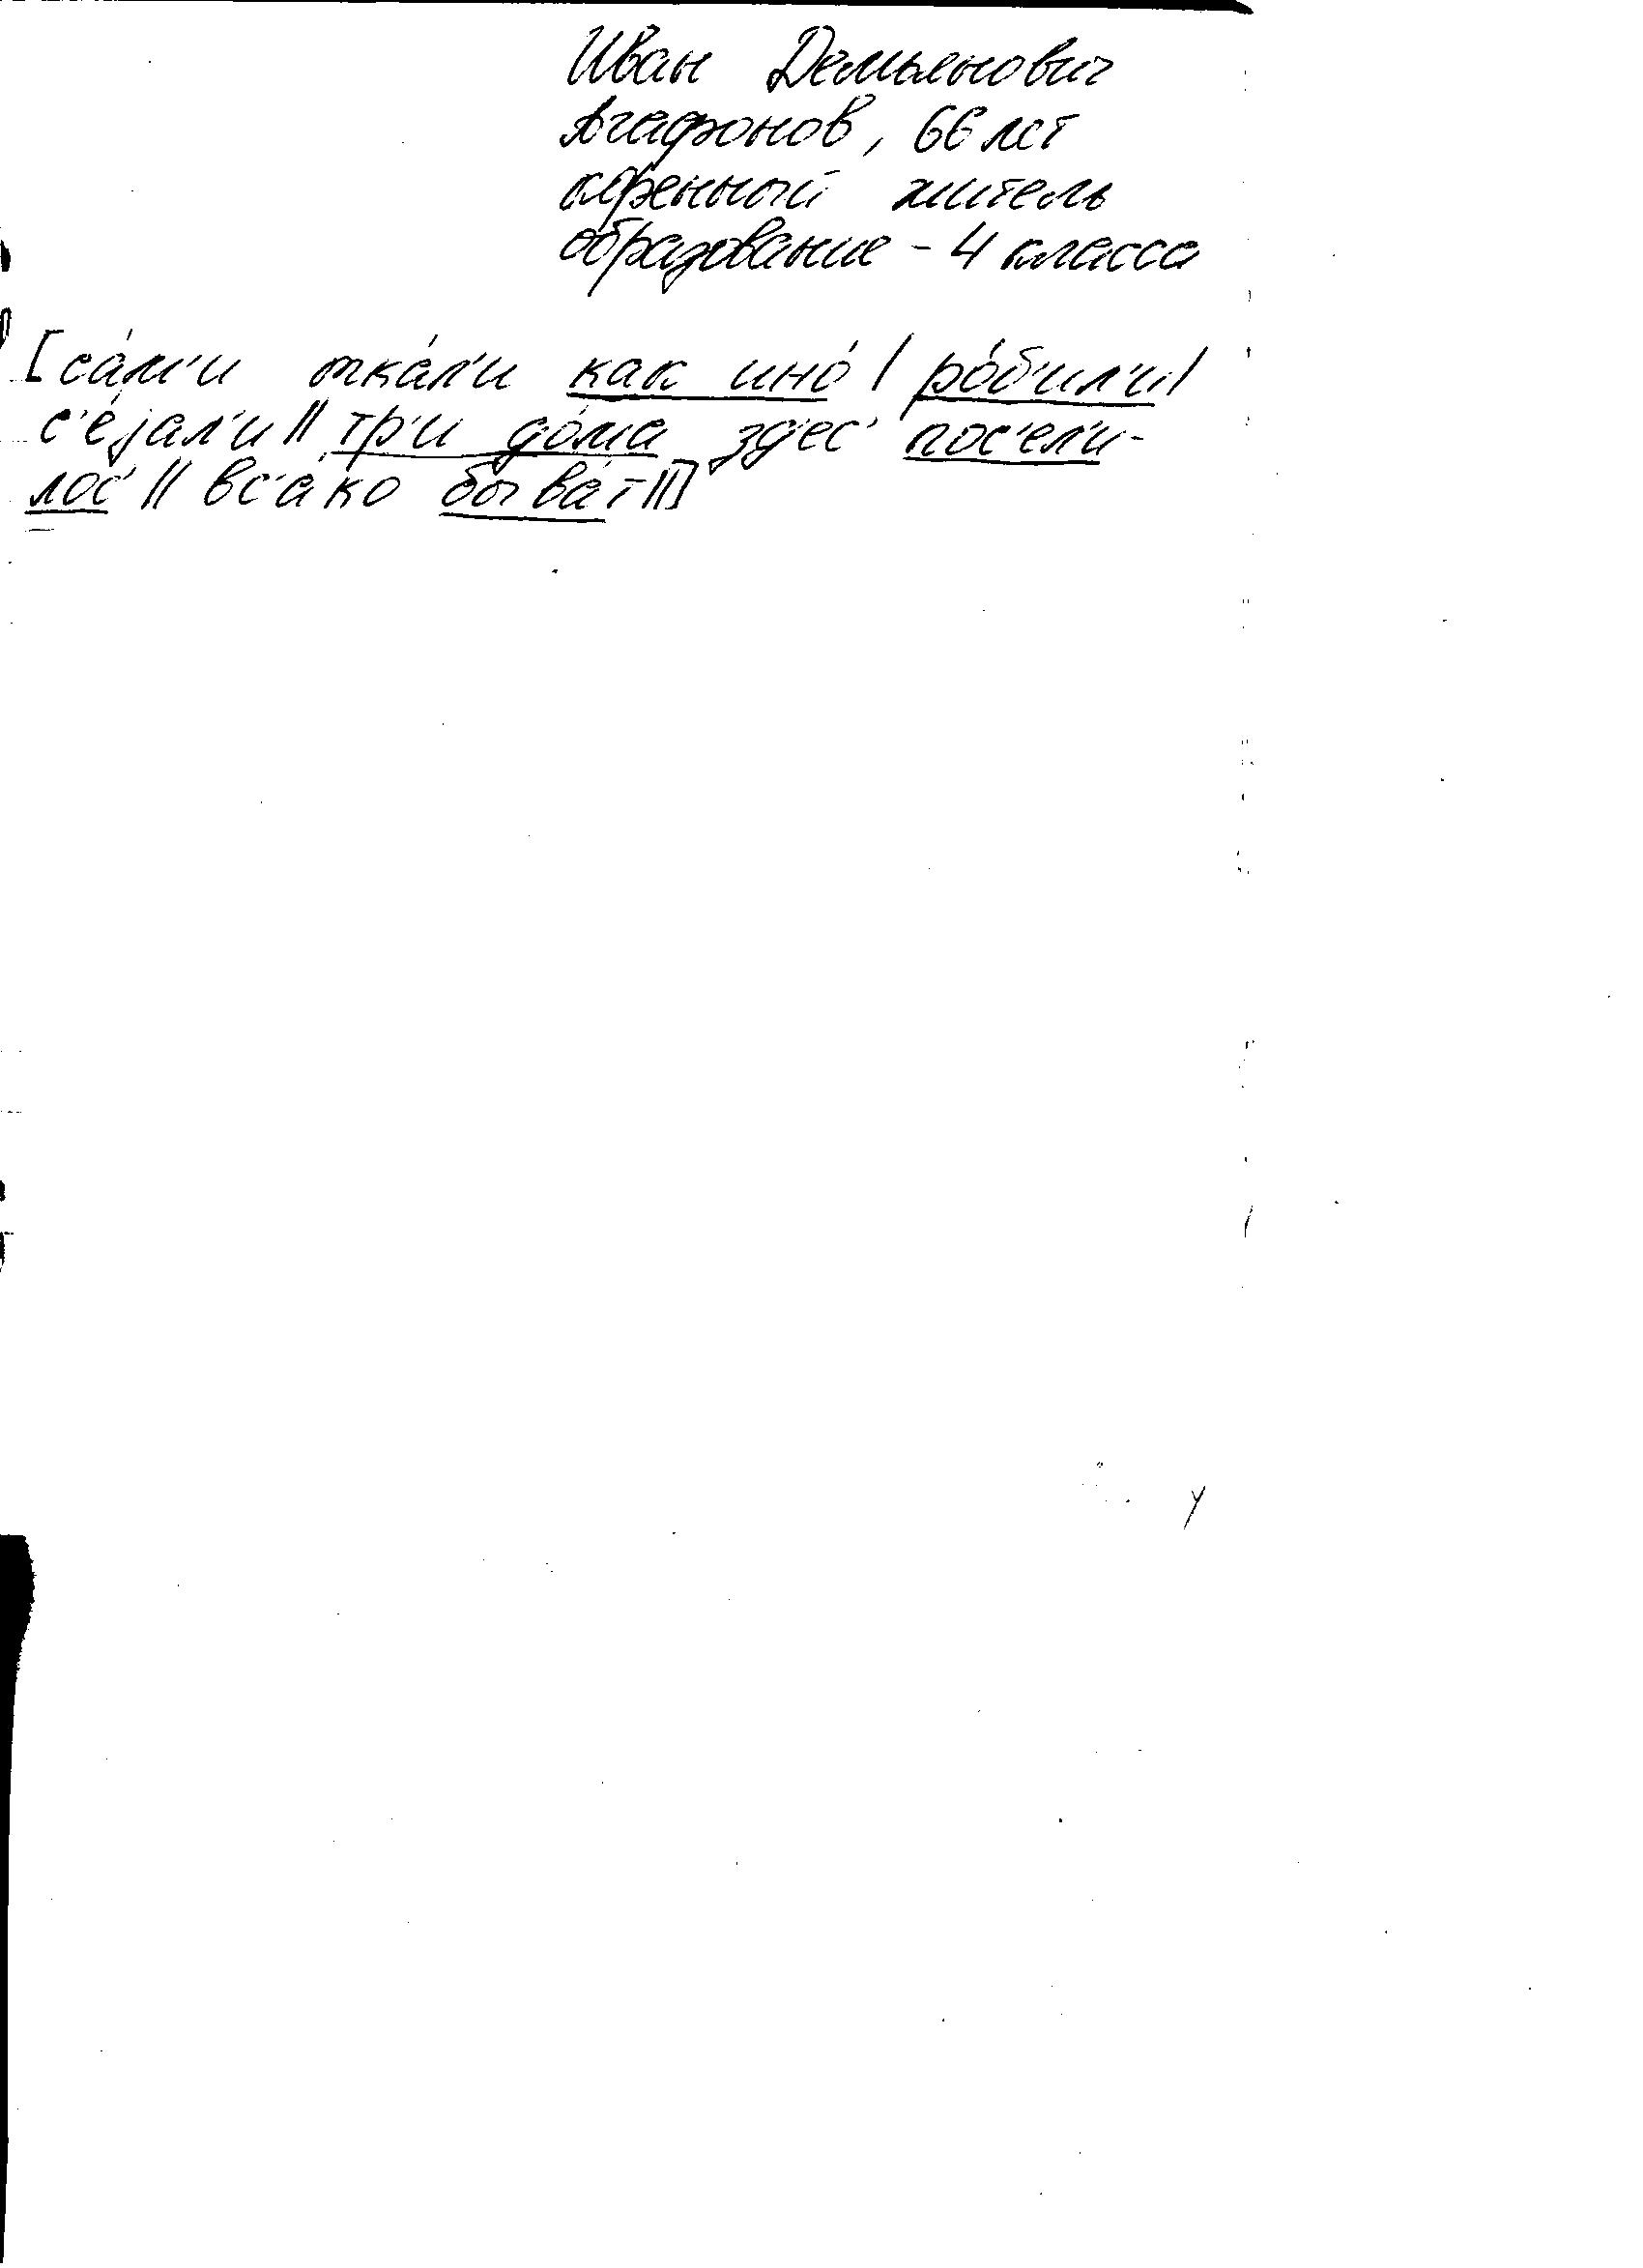 Иван Демьянович
Агафонов, 66 лет
коренный житель
образование - 4 класса
[са́м'и тка́л'и как ино́ | ро́б'ил'и |
с'е́јал'и || тр'и до́ма зд'ес' пос'ел'и-
лос' || вс'а́ко быва́т ||]